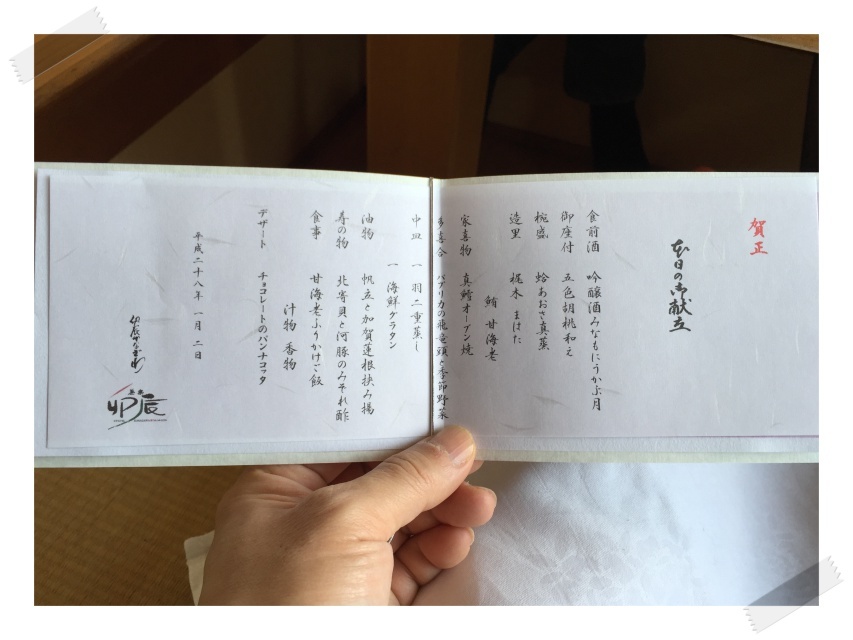 賀正
本日の御献立
食前酒 吟醸酒みなもにうかぶ月
御座付 五色胡桃和え
椀盛 蛤あおさ真蒸
造里 梶木 まはた
鮪 甘海老
家喜物 真鱈オーブン焼
多喜合 パプリカの飛竜頭と季節野菜
中皿 一 羽二重蒸し
一 海鮮グラタン
油物 帆立と加賀蓮根挟み揚
寿の物 北寄貝と河豚のみぞれ酢
食事 甘海老ふりかけご飯
汁物 香物
デザート チョコレートのパンナコッタ
平成二十八年 一月 二日
卯辰